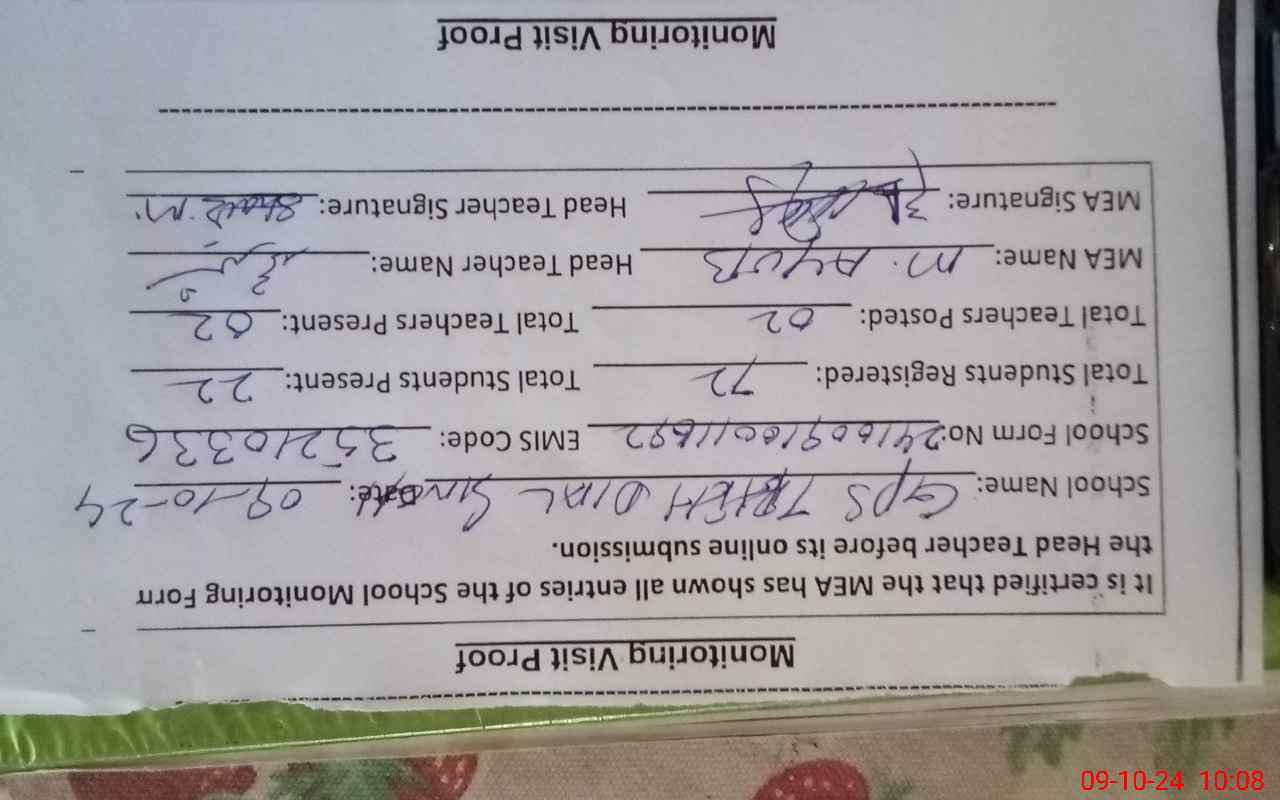 Monitoring Visit Proof
It is certified that the MEA has shown all entries of the School Monitoring Form
the Head Teacher before its online submission.
School Name: GPS DIAL Date: 09-10-24
School Form No: EMIS Code: 35210336
Total Students Registered: 72 Total Students Present: 22
Total Teachers Posted: 02 Total Teachers Present: 02
MEA Name: M. AYUB Head Teacher Name:
MEA Signature: Head Teacher Signature:
Monitoring Visit Proof
09-10-24 10:08